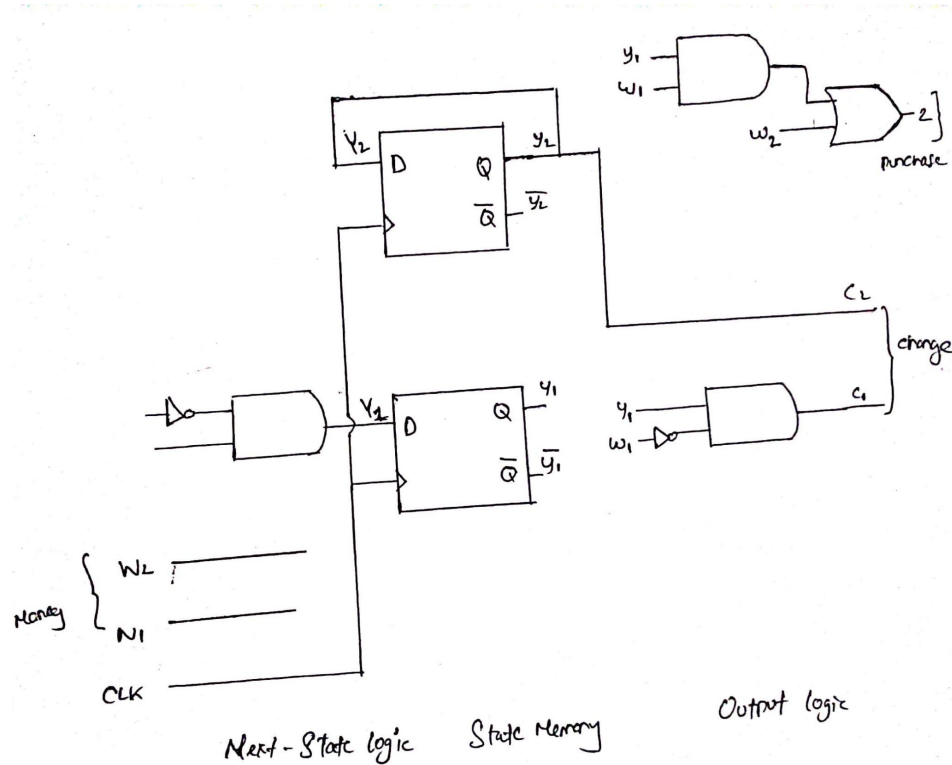 y₁
w₁
w₂
2
purchase
Y₂
y₂
D
Q
Q̅
y̅₂
C₂
change
Y₁
D
Q
y₁
Q̅
y̅₁
y₁
w₁
C₁
Money
W₂
N1
CLK
Next-State logic
State Memory
Output logic